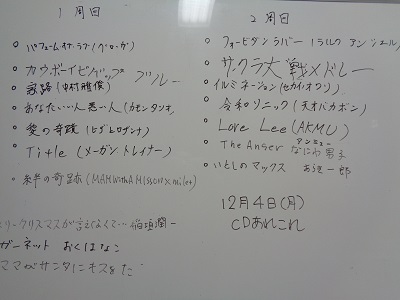 1周目
パフュームオブラブ(グローブ)
カウボーイビバップ ブルー
家路(中村雅俊)
あなたいい人悪い人(カモンタツオ)
愛の奇跡(ヒデとロザンナ)
Title(メーガントレイナー)
奇跡(MAN WITH A MISSION×milet)
クリスマスが言えなくて… 稲垣潤一
ガーネット おくはなこ
ママがサンタにキスをした
2周目
フォービダンラバー(ラルク アン シエル)
サクラ大戦メドレー
イルミネーション(セカイノオワリ)
令和ソニック(天才バカボン)
Love Lee(AKMU)
The Answer なにわ男子
いとしのマックス
12月4日(月)
CDあれこれ